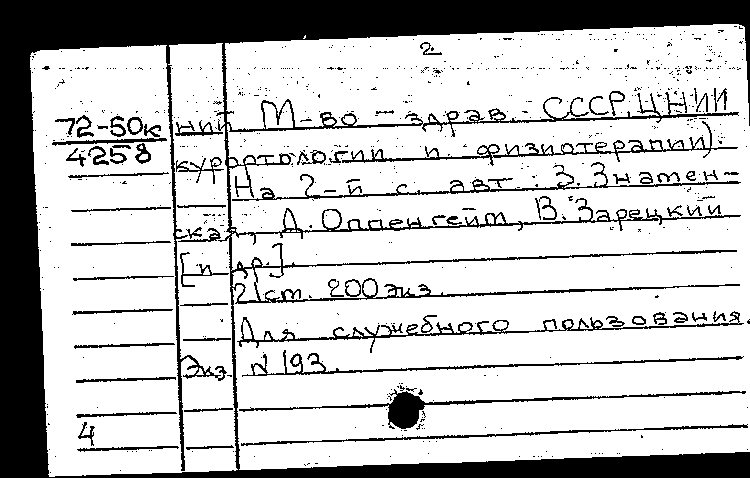 2
72-50к ний М-во - здрав. СССР, ЦНИИ
4258 курортологии и физиотерапии).
На 2-й с. авт.: З. Знамен-
ская, Д. Оппенгейм, В. Зарецкий
[и др.].
21 ст. 200 экз.
Для служебного пользования.
Экз N 193.
4